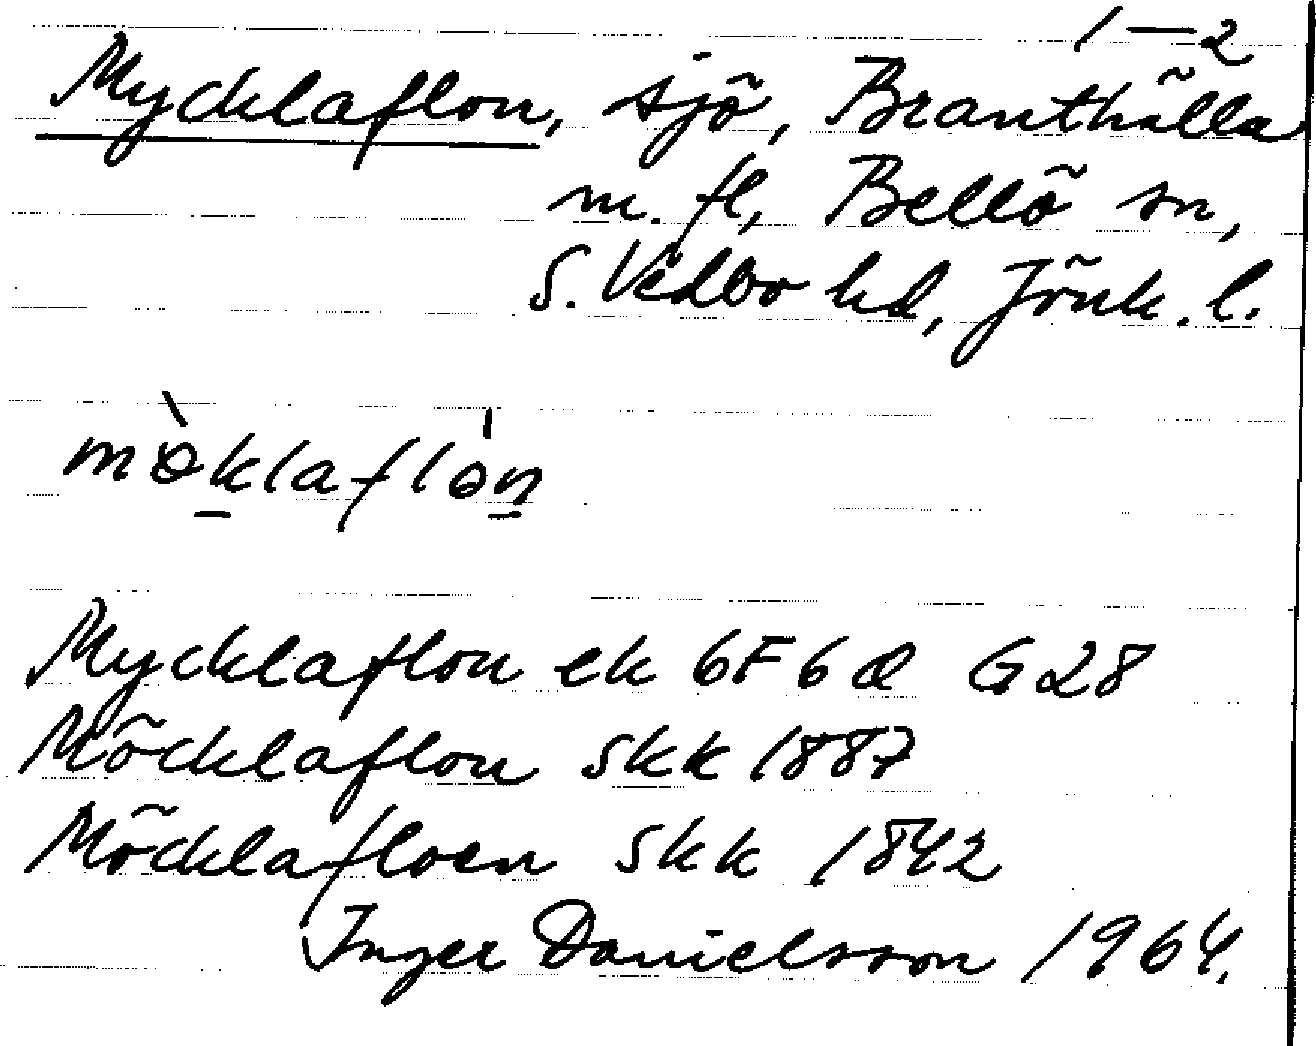 1—2
Mycklaflon, sjö, Branthälla
m. fl, Bellö sn,
S. Vedbo hd, Jönk. l.
mə̀klaflən
Mycklaflon ek 6F6d G28
Möcklaflon skk 1887
Möcklafloen skk 1842
Inger Danielsson 1964.